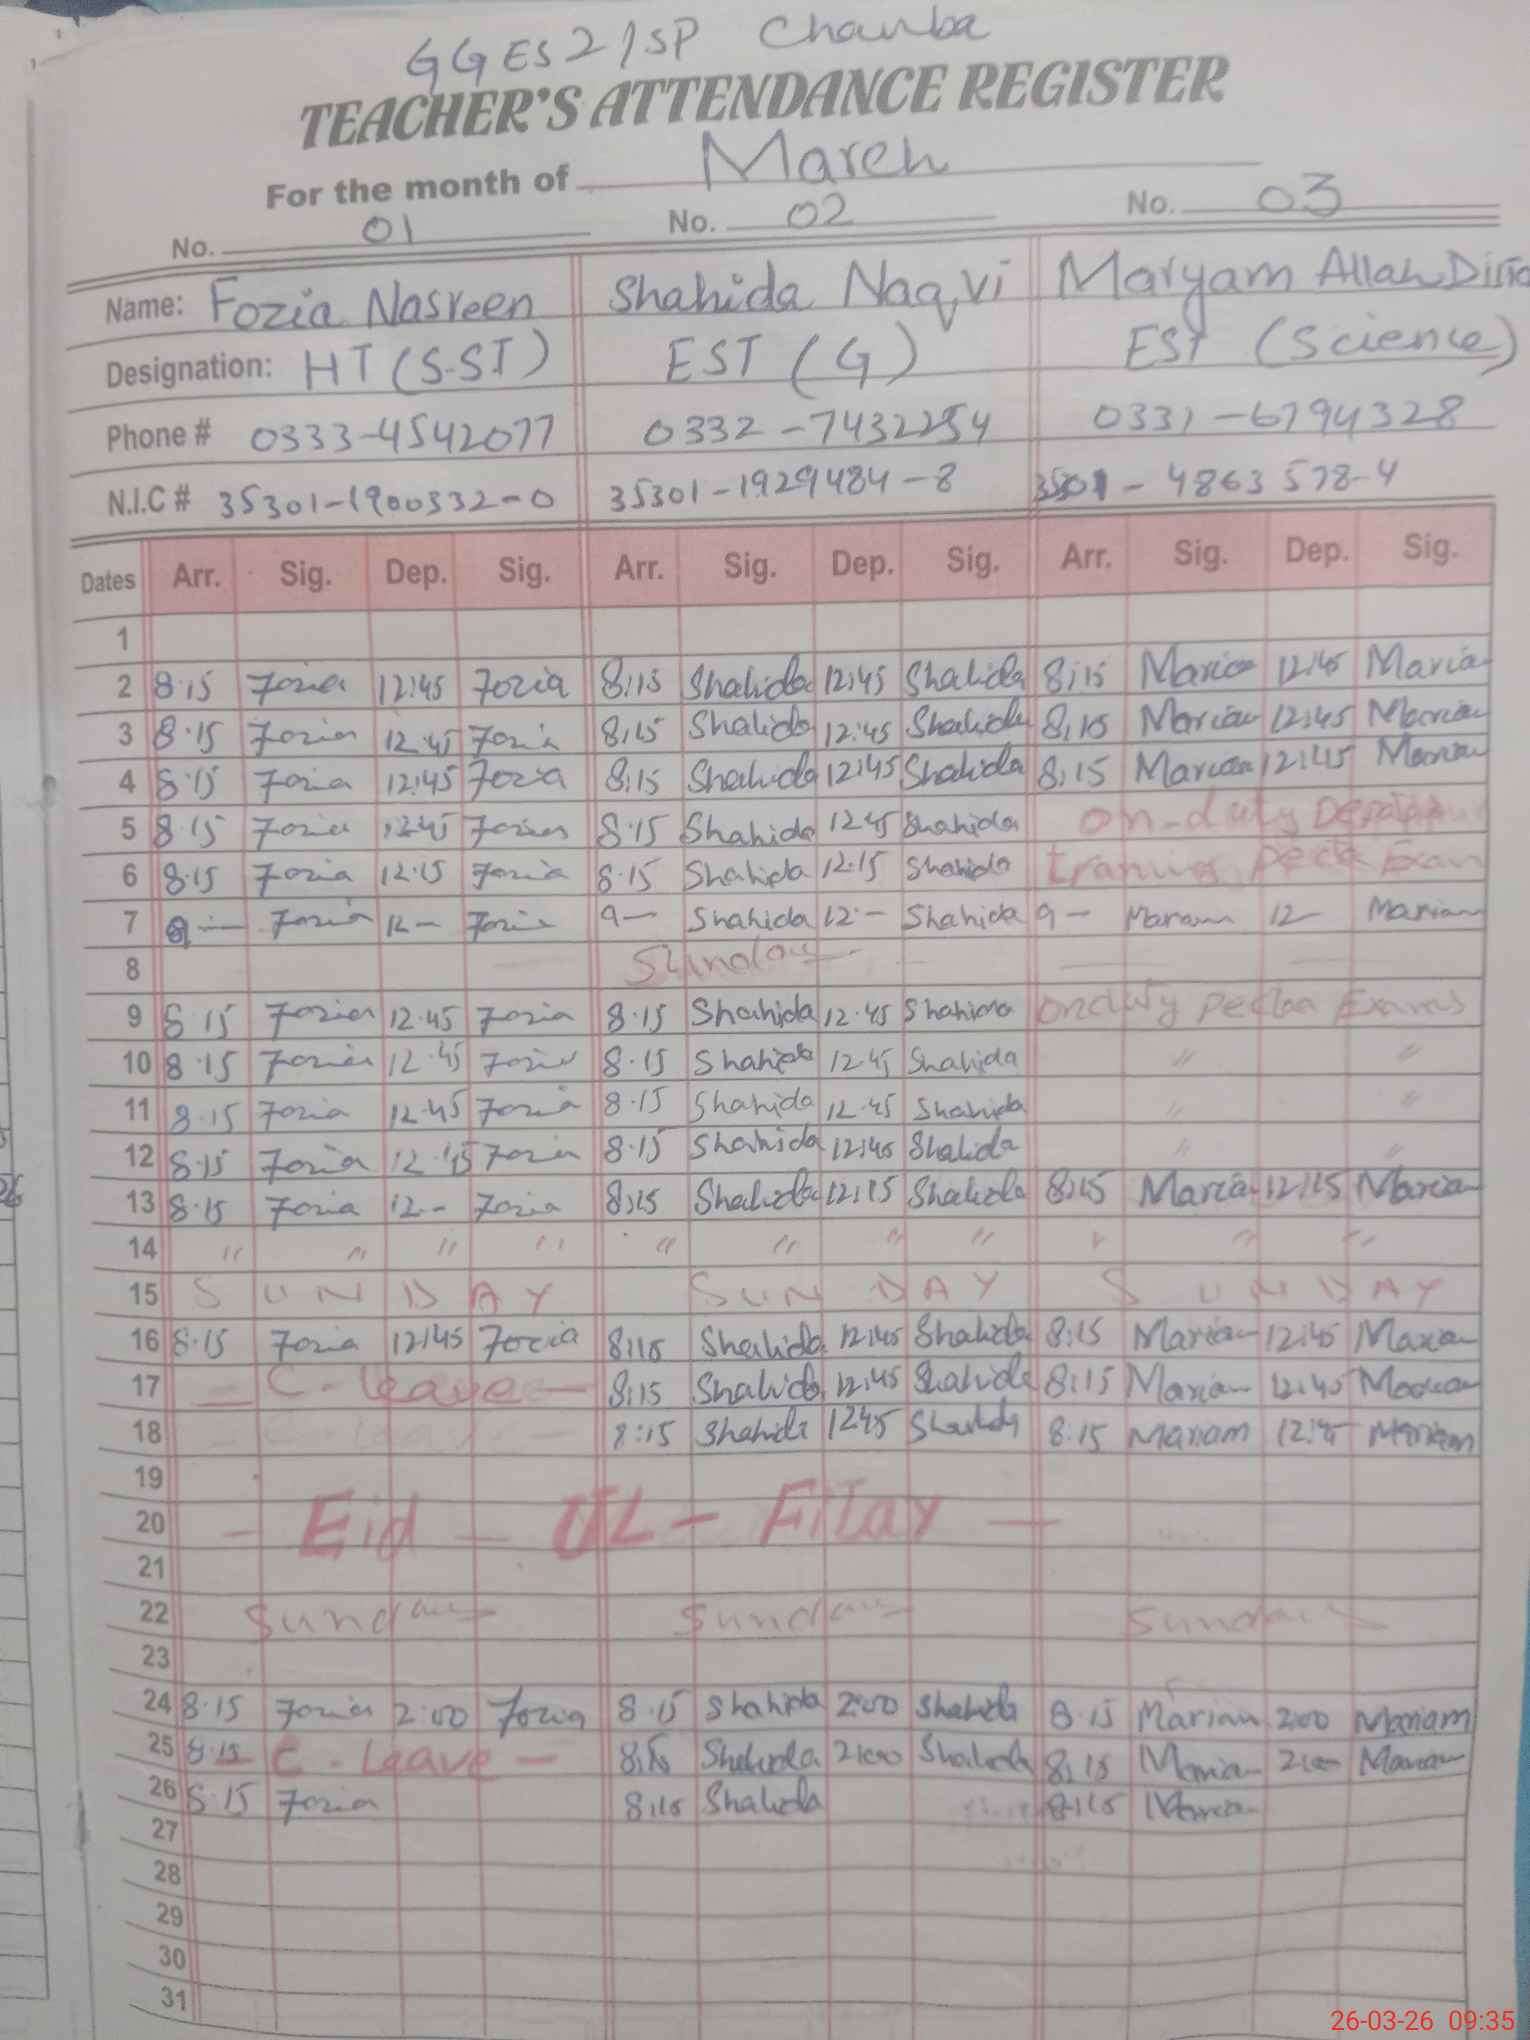 GGES 2/SP Chamba
TEACHER'S ATTENDANCE REGISTER
For the month of March
No. 01 No. 02 No. 03
Name: Fozia Nasreen Shahida Naqvi Maryam Allah Ditta
Designation: HT (S.ST) EST (G) EST (Science)
Phone # 0333-4542077 0332-7432254 0331-6794328
N.I.C # 35301-1900332-0 35301-1929484-8 35301-4863578-4
Dates Arr. Sig. Dep. Sig. Arr. Sig. Dep. Sig. Arr. Sig. Dep. Sig.
1
2 8.15 Fozia 12:45 Fozia 8:15 Shahida 12:45 Shahida 8:15 Mariam 12:45 Mariam
3 8.15 Fozia 12.45 Fozia 8:15 Shahida 12:45 Shahida 8:15 Mariam 12:45 Mariam
4 8.15 Fozia 12:45 Fozia 8:15 Shahida 12:45 Shahida 8:15 Mariam 12:45 Mariam
5 8.15 Fozia 12:45 Fozia 8.15 Shahida 12.45 Shahida on-duty
6 8.15 Fozia 12.15 Fozia 8.15 Shahida 12.15 Shahida Exam
7 9— Fozia 12— Fozia 9— Shahida 12— Shahida 9— Mariam 12— Mariam
8 Sunday
9 8.15 Fozia 12.45 Fozia 8.15 Shahida 12.45 Shahida onduty Exams
10 8.15 Fozia 12.45 Fozia 8.15 Shahida 12.45 Shahida " "
11 8.15 Fozia 12.45 Fozia 8.15 Shahida 12.45 Shahida " "
12 8.15 Fozia 12.45 Fozia 8.15 Shahida 12:45 Shahida " "
13 8.15 Fozia 12.- Fozia 8:15 Shahida 12:15 Shahida 8:15 Mariam 12:15 Mariam
14 " " " " " " " " " " "
15 SUNDAY SUNDAY SUNDAY
16 8.15 Fozia 12:45 Fozia 8:15 Shahida 12:45 Shahida 8:15 Mariam 12:45 Mariam
17 — C-leave — 8:15 Shahida 12:45 Shahida 8:15 Mariam 12:45 Mariam
18 C-leave 8:15 Shahida 12:45 Shahida 8:15 Mariam 12:45 Mariam
19
20 — Eid — UL — Fitay —
21
22 Sunday Sunday Sunday
23
24 8.15 Fozia 2:00 Fozia 8.15 Shahida 2:00 Shahida 8.15 Mariam 2:00 Mariam
25 8.15 C-leave — 8:15 Shahida 2:00 Shahida 8:15 Mariam 2:00 Mariam
26 8.15 Fozia 8:15 Shahida 8:15 Mariam
27
28
29
30
31
26-03-26 09:35